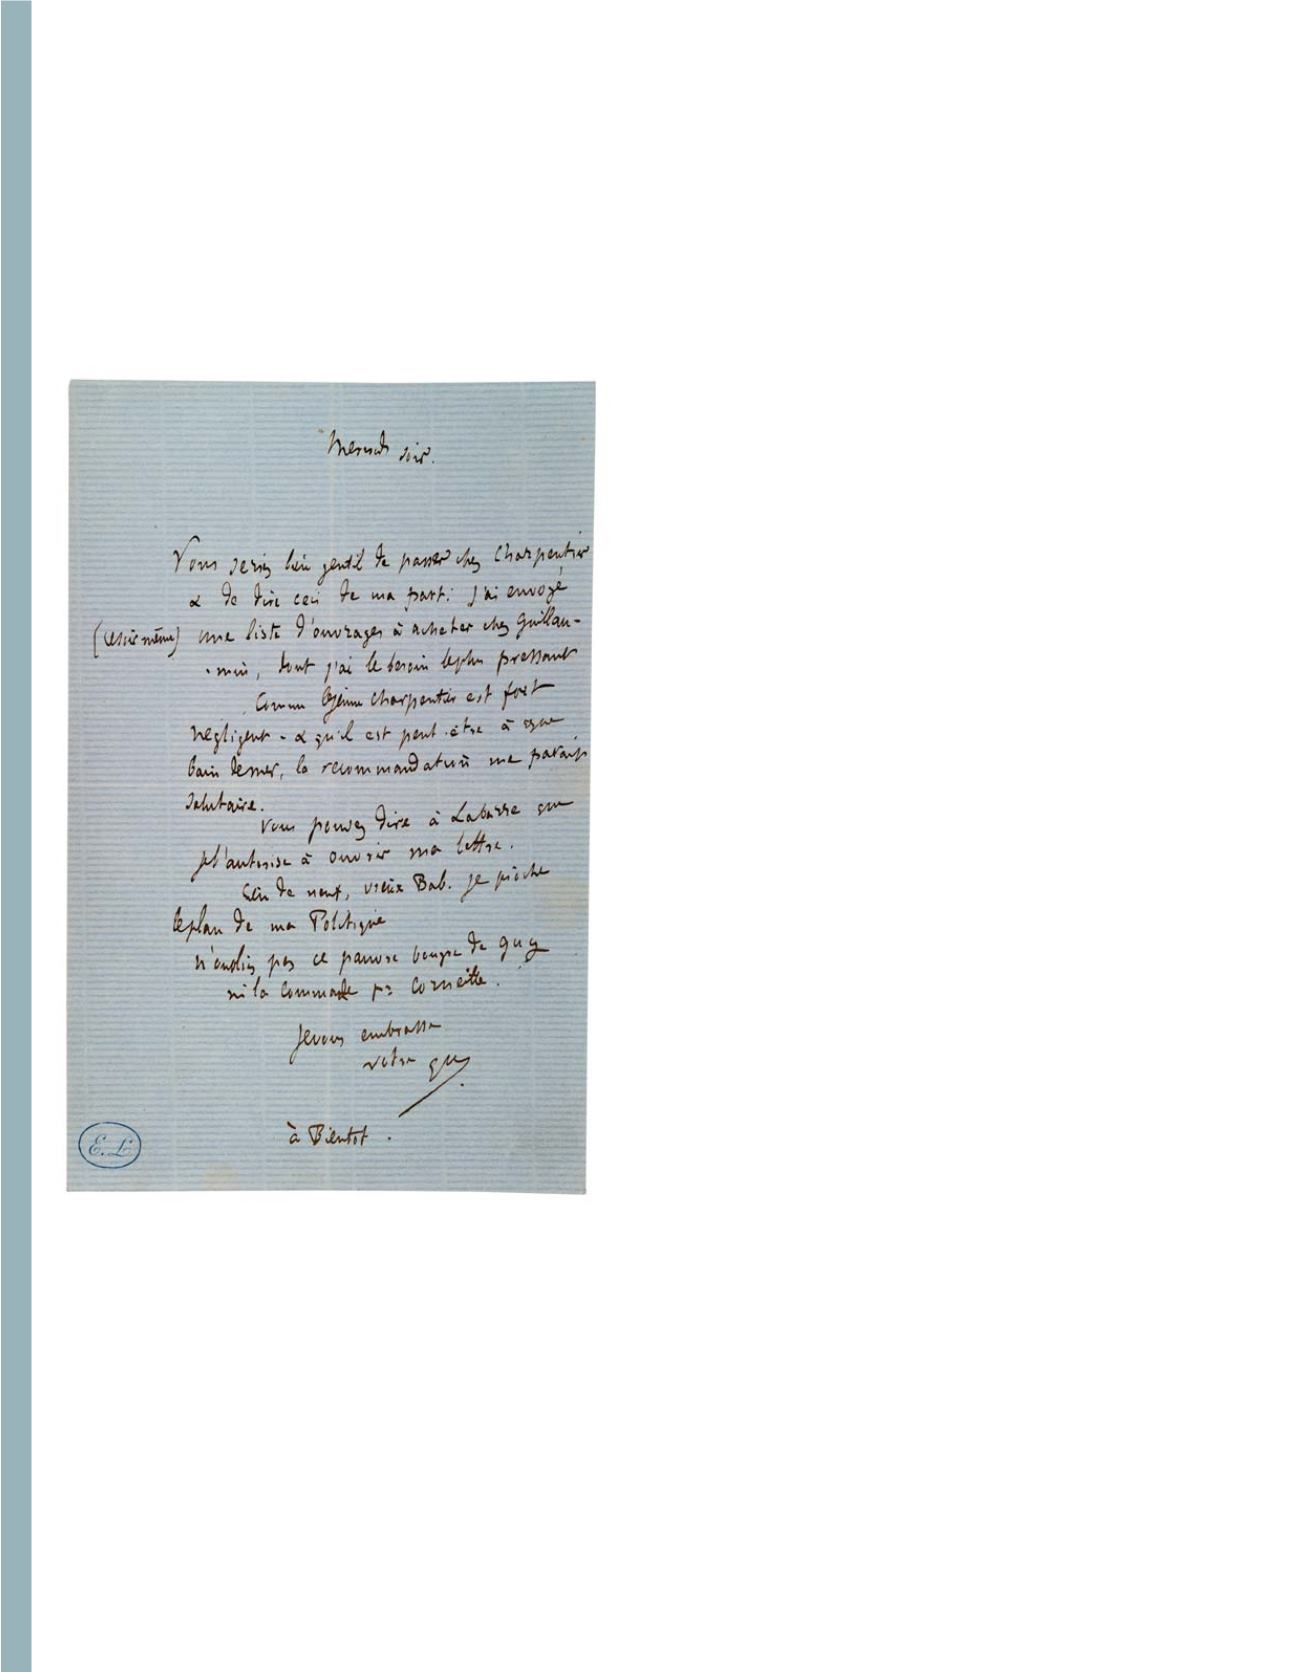 Mercredi soir.
Vous seriez bien gentil de passer chez Charpentier
& de dire ceci de ma part : j'ai envoyé
(ce soir même) une liste d'ouvrages à acheter chez Guillau-
-min, dont j'ai le besoin le plus pressant
Comme le jeune Charpentier est fort
négligent - & qu'il est peut-être à
bain de mer, la recommandation me parait
salutaire.
Vous pouvez dire à Labarre que
je l'autorise à ouvrir ma lettre.
rien de neuf, vieux Bab. je pioche
le plan de ma Politique
n'oubliez pas ce pauvre bougre de guy
ni la commande pr Corneille.
Je vous embrasse
votre
à Bientot.
E. L.